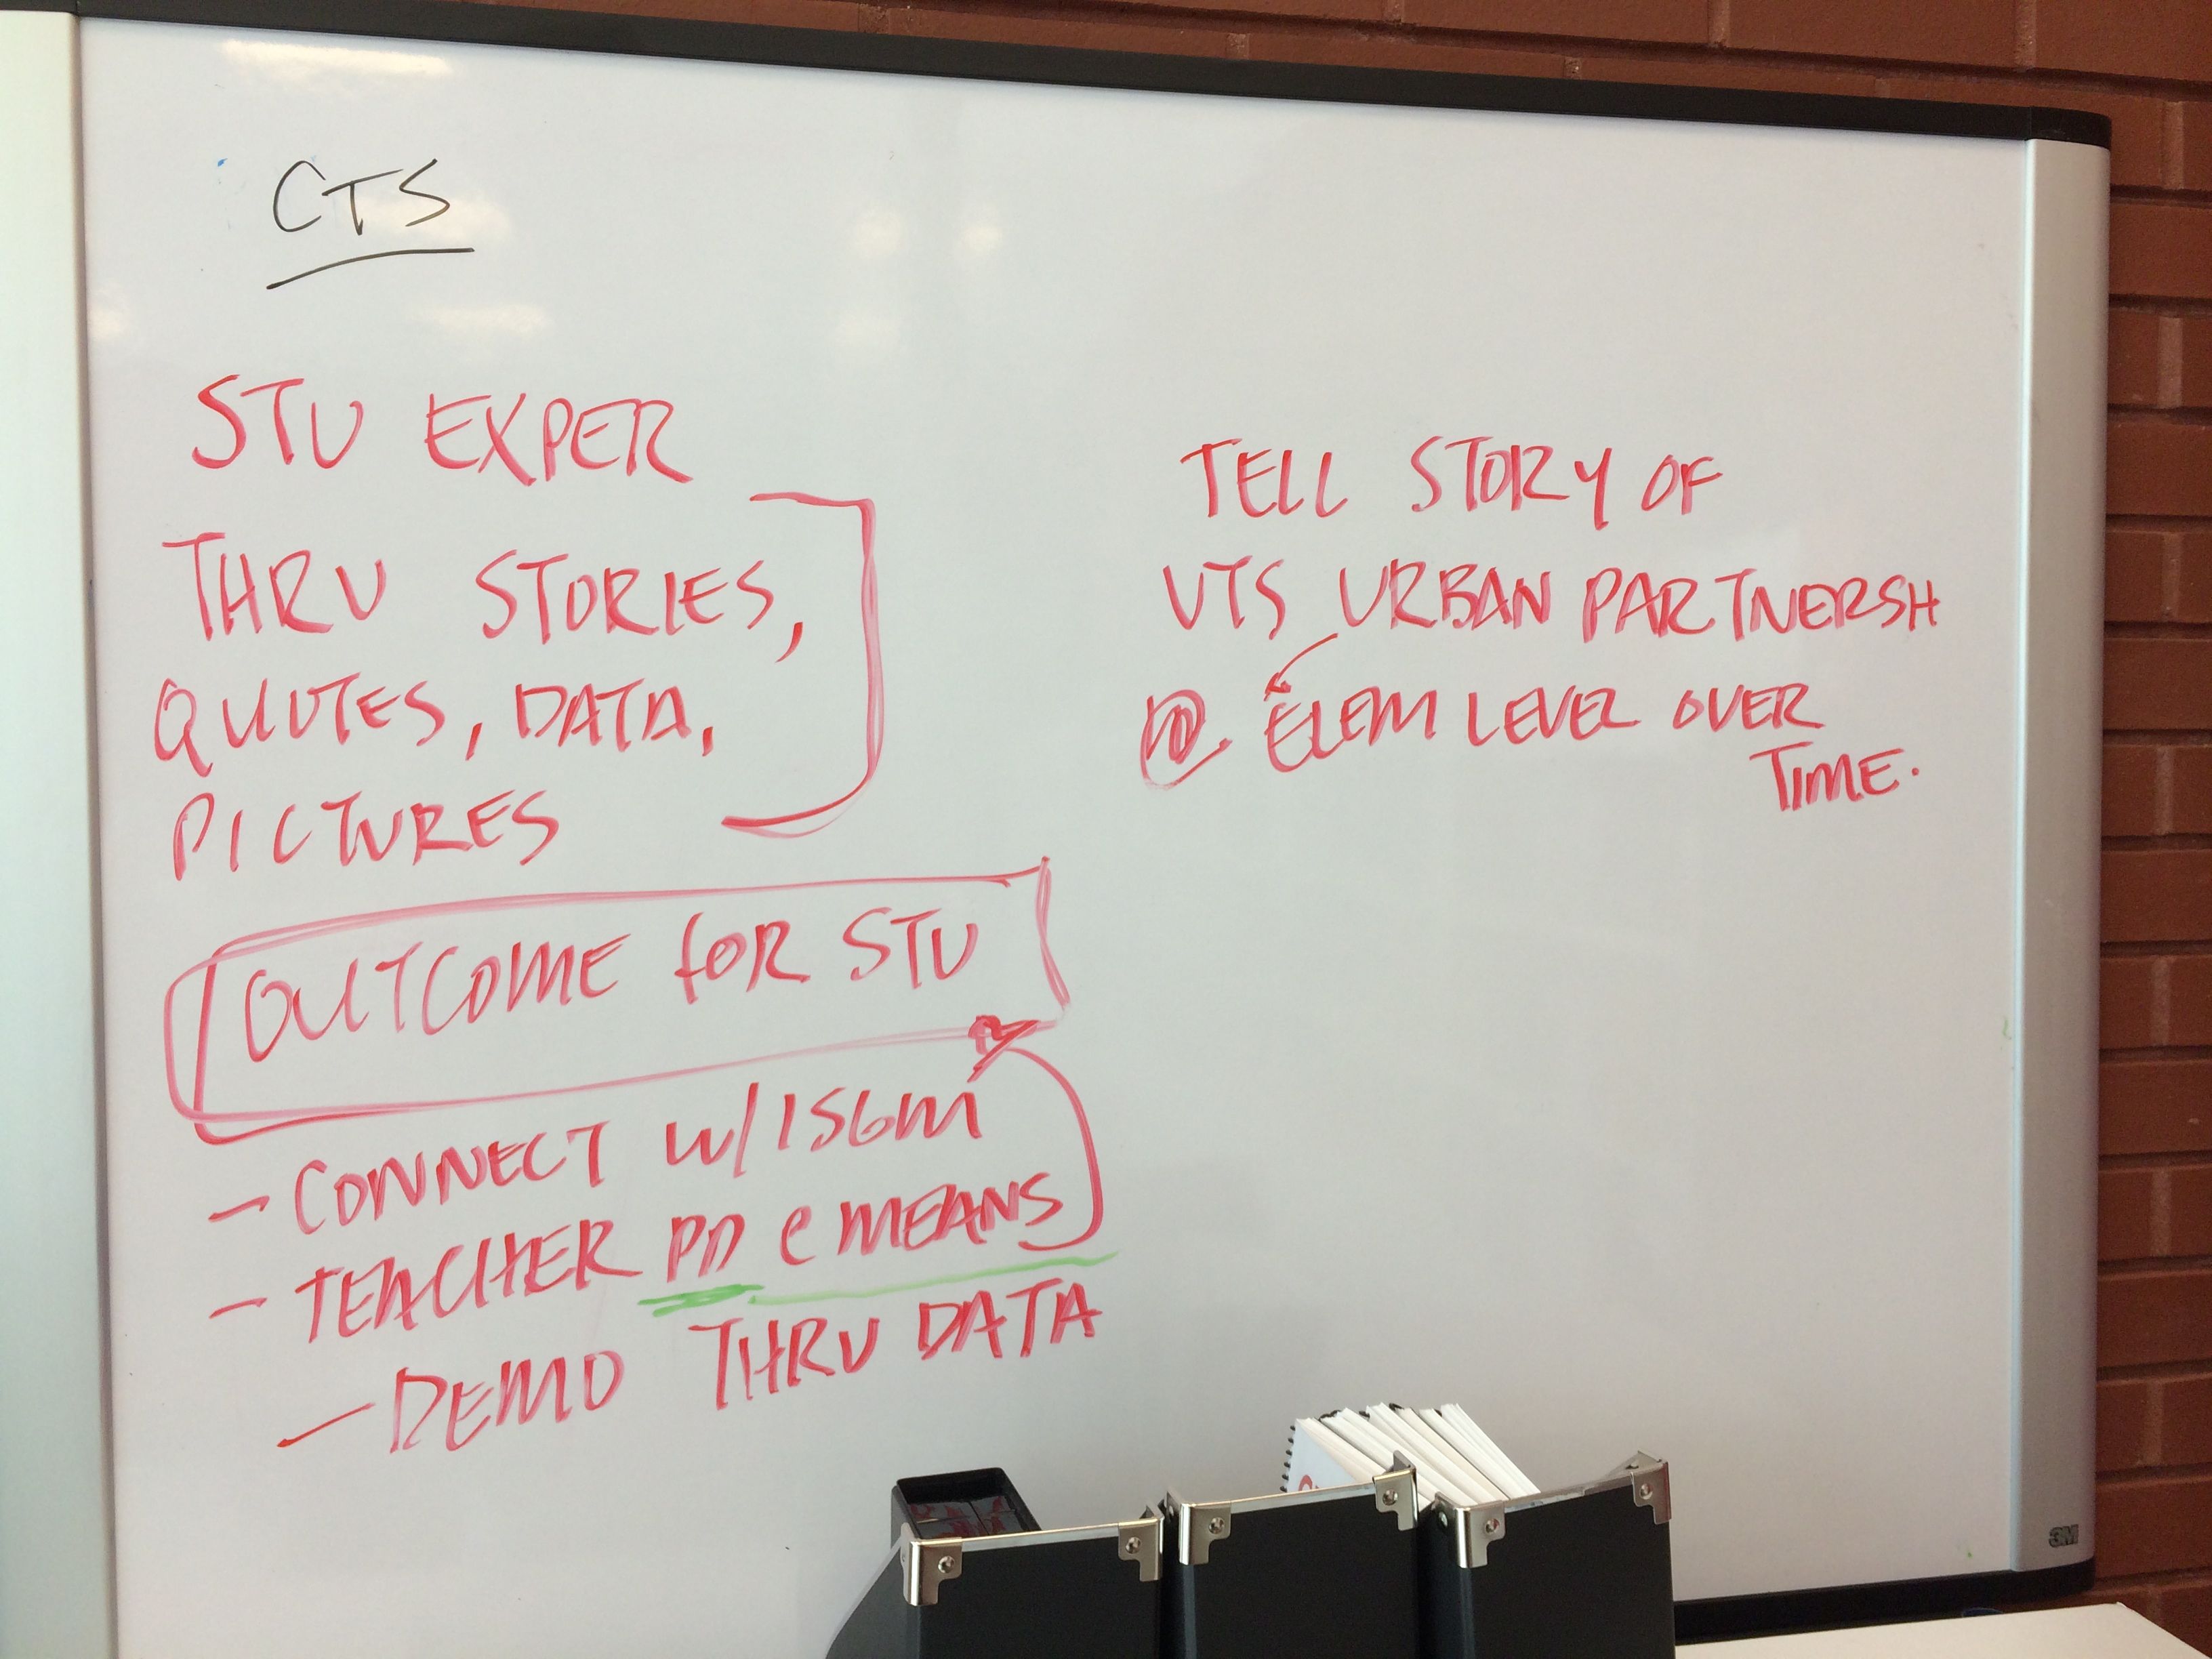 CTS
STU EXPER
THRU STORIES,
QUOTES, DATA,
PICTURES
OUTCOME for STU
- CONNECT w/ ISGM
- TEACHER PD @ MEANS
- DEMO THRU DATA
TELL STORY OF
VTS URBAN PARTNERSH
@ ELEM LEVEL OVER
TIME.
3M